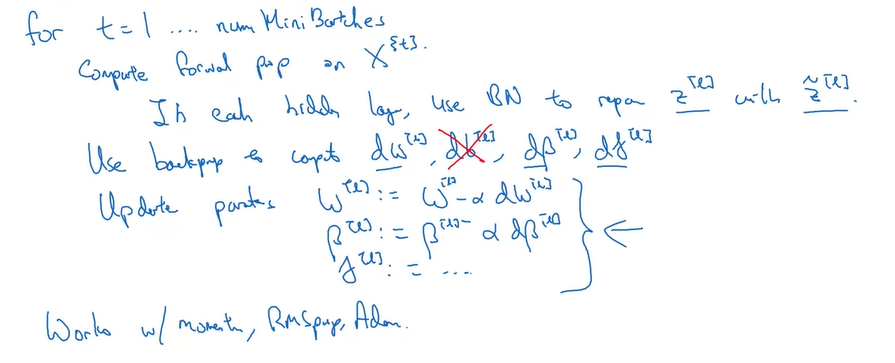 for t = 1 .... num MiniBatches
Compute forward prop on X^{t}.
In each hidden layer, use BN to replace z^[l] with z̃^[l].
Use backprop to compute dw^[l], db^[l], dβ^[l], dγ^[l]
Update parameters w^[l] := w^[l] - α dw^[l]
β^[l] := β^[l] - α dβ^[l]
γ^[l] := ....
Works w/ momentum, RMSprop, Adam.